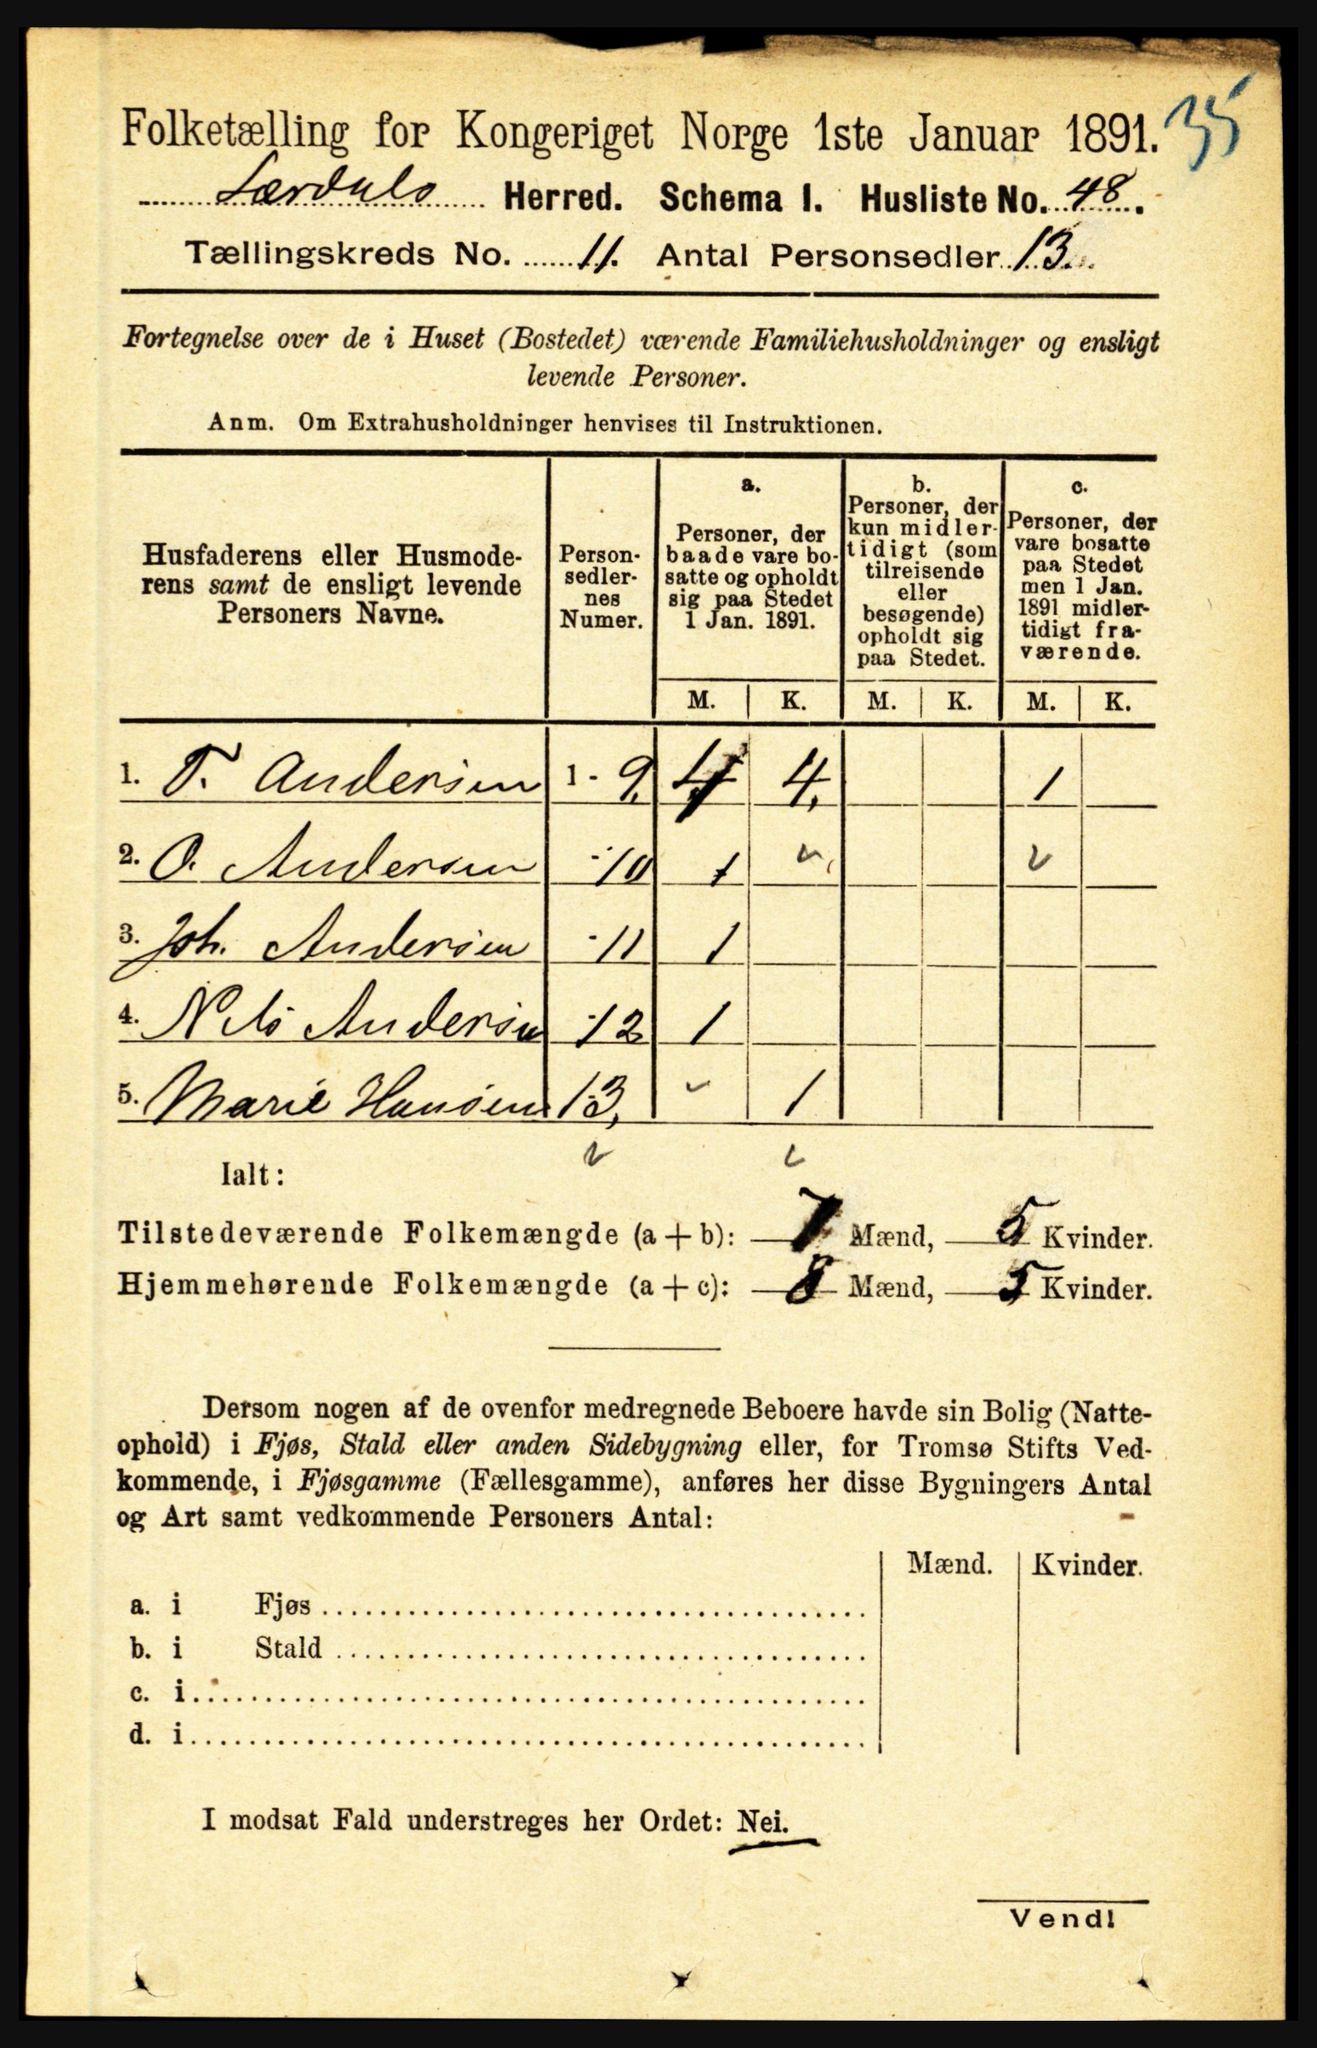 35
Folketælling for Kongeriget Norge 1ste Januar 1891.
Lærdals Herred. Schema I. Husliste No. 48.
Tællingskreds No. 11. Antal Personsedler 13.
Fortegnelse over de i Huset (Bostedet) værende Familiehusholdninger og ensligt
levende Personer.
Anm. Om Extrahusholdninger henvises til Instruktionen.
Husfaderens eller Husmode-
rens samt de ensligt levende
Personers Navne.
Person-
sedler-
nes
Numer.
a.
Personer, der
baade vare bo-
satte og opholdt
sig paa Stedet
1 Jan. 1891.
b.
Personer, der
kun midler-
tidigt (som
tilreisende
eller
besøgende)
opholdt sig
paa Stedet.
c.
Personer, der
vare bosatte
paa Stedet
men 1 Jan.
1891 midler-
tidigt fra-
værende.
M. K. M. K. M. K.
1. T. Andersen 1 - 9. 4 4. 1
2. O. Andersen - 10 1
3. Joh. Andersen - 11 1
4. Nils Andersen - 12 1
5. Marie Hansen 13, 1
Ialt:
Tilstedeværende Folkemængde (a + b): 7 Mænd, 5 Kvinder.
Hjemmehørende Folkemængde (a + c): 8 Mænd, 5 Kvinder.
Dersom nogen af de ovenfor medregnede Beboere havde sin Bolig (Natte-
ophold) i Fjøs, Stald eller anden Sidebygning eller, for Tromsø Stifts Ved-
kommende, i Fjøsgamme (Fællesgamme), anføres her disse Bygningers Antal
og Art samt vedkommende Personers Antal:
Mænd. Kvinder.
a. i Fjøs
b. i Stald
c. i
d. i
I modsat Fald understreges her Ordet: Nei.
Vend!